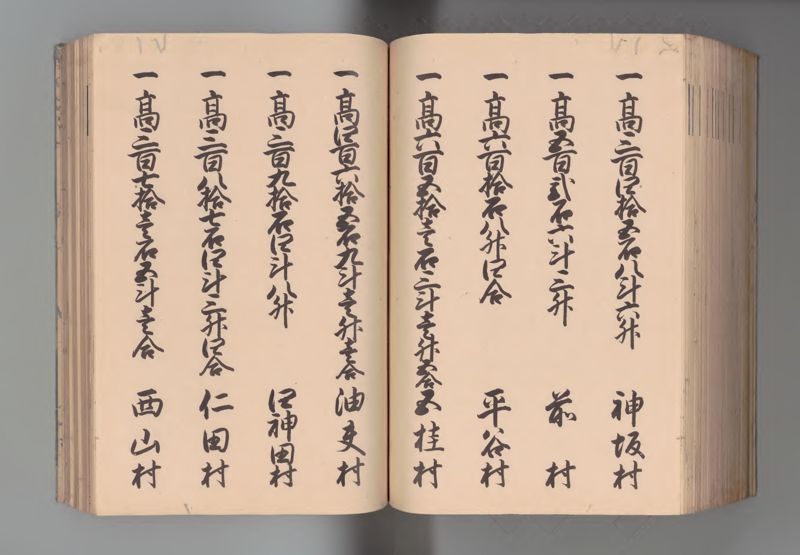 一高三百四拾五石八斗六舛 神坂村
一高五百弐石六斗三舛 前村
一高六百拾石八舛四合 平谷村
一高六百五拾壱石三斗壱舛五合 五桂村
一高四百六拾五石九斗壱舛壱合 油夫村
一高三百九拾石四斗八舛 四神田村
一高三百八拾七石四斗三舛四合 仁田村
一高三百七拾壱石五斗壱合 西山村